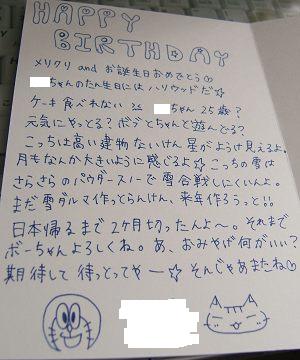 HAPPY
BIRTHDAY
メリクリ and お誕生日おめでとう
ちゃんのたん生日には ハリウッドだ☆
ケーキ食べれない ちゃん 25歳?
元気にやっとる? ボブとちゃんと遊んどる?
こっちは高い建物ないけん 星がようけ見えるよ。
月もなんか大きいように感じるよ☆ こっちの雪は
さらさらのパウダースノーで 雪合戦しにくいんよ。
まだ雪ダルマ作ってらんけん、来年作ろうっと!!
日本帰るまで2ヶ月切ったんよ〜。それまで
ボーちゃんよろしくね。あ、おみやげ何がいい?
期待して 待っとってやー☆ そんじゃあまたね